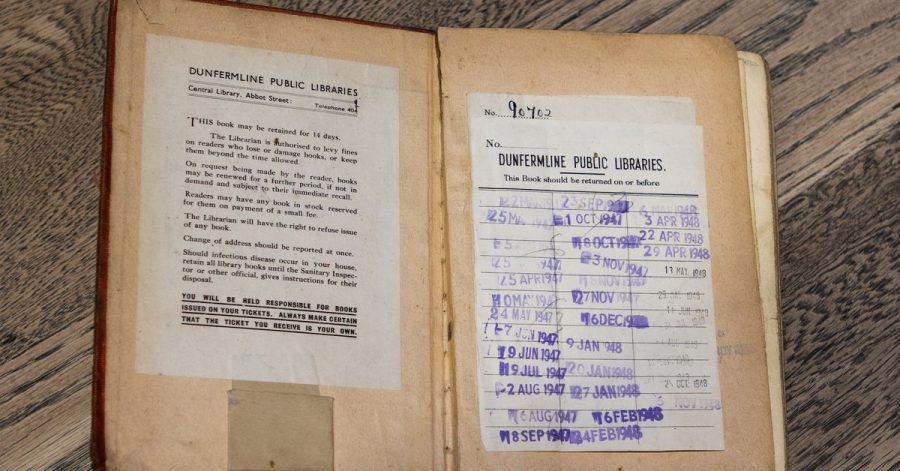 DUNFERMLINE PUBLIC LIBRARIES
Central Library, Abbot Street: Telephone
THIS book may be retained for 14 days.
The Librarian is authorised to levy fines
on readers who lose or damage books, or keep
them beyond the time allowed.
On request being made by the reader, books
may be renewed for a further period, if not in
demand and subject to their immediate recall.
Readers may have any book in stock reserved
for them on payment of a small fee.
The Librarian will have the right to refuse issue
of any book.
Change of address should be reported at once.
Should infectious disease occur in your house,
retain all library books until the Sanitary Inspec-
tor or other official, gives instructions for their
disposal.
YOU WILL BE HELD RESPONSIBLE FOR BOOKS
ISSUED ON YOUR TICKETS. ALWAYS MAKE CERTAIN
THAT THE TICKET YOU RECEIVE IS YOUR OWN.
No. 90702
No.
DUNFERMLINE PUBLIC LIBRARIES.
This Book should be returned on or before
25 APR 1947
24 MAY 1947
7 JUN 1947
19 JUN 1947
9 JUL 1947
2 AUG 1947
16 AUG 1947
18 SEP 1947
SEP 1947
1 OCT 1947
18 OCT 1947
3 NOV 1947
NOV 1947
27 NOV 1947
16 DEC
9 JAN 1948
20 JAN 1948
27 JAN 1948
16 FEB 1948
24 FEB 1948
1948
3 APR 1948
22 APR 1948
29 APR 1948
13 MAY 1948
OCT 1948
NOV 1948